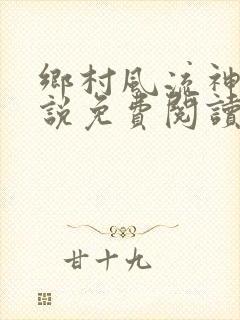 鄉村風流神
說免費閱讀
甘十九